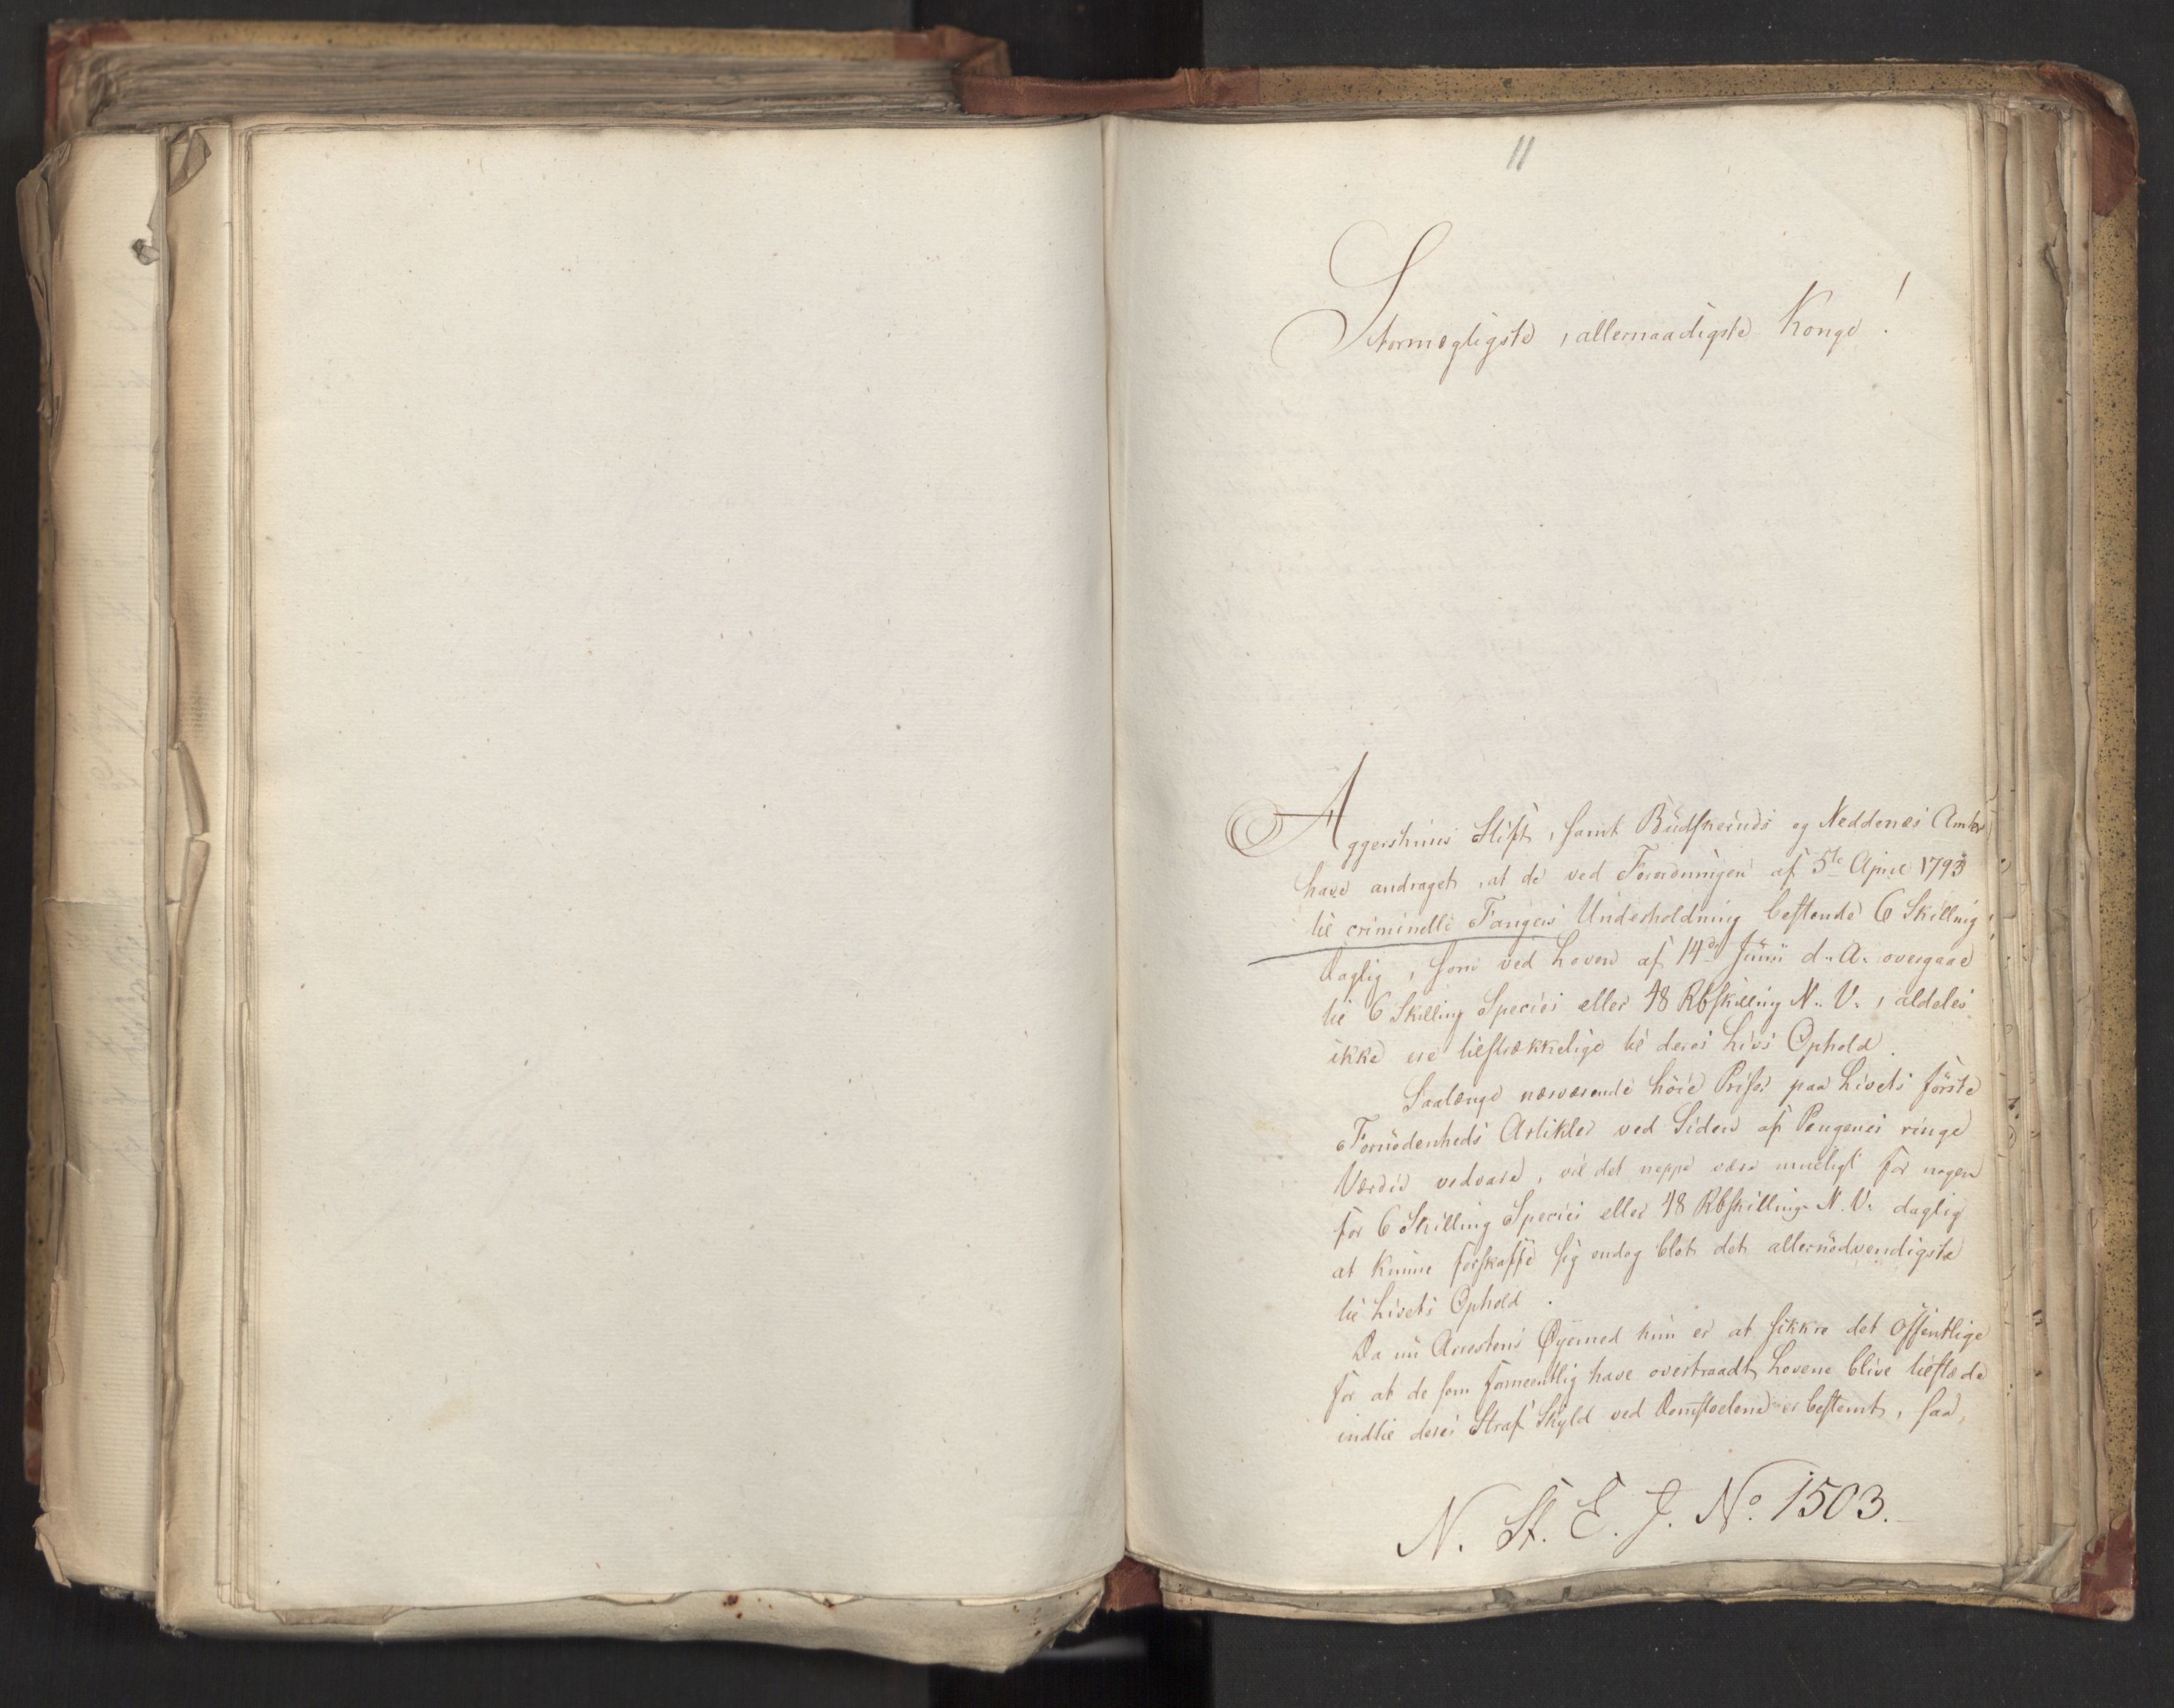 11
Stormægtigste, allernaadigste Konge!
Aggershuus Stift, samt Budskeruds og Neddenes Amter
have andraget, at de ved Forordningen af 5te April 1793
til criminelle Fangers Underholdning bestemte 6 Skilling
daglig, som ved Loven af 14de Junii d. A. overgaae
til 6 Skilling Species eller 48 Rbskilling N. V., aldeles
ikke ere tilstrækkelige til deres Livs Ophold.
Saalænge nærværende höie Priser paa Livets förste
Fornödenheds Artikler ved Siden af Pengenes ringe
Værdie vedvare, vil det neppe være mueligt for nogen
for 6 Skilling Species eller 48 Rbskilling N. V. daglig
at kunne forskaffe sig endog blot det allernödvendigste
til Livets Ophold.
Da nu Arrestens Øyemed kun er at sikkre det offentlige
for at de som formeentlig have overtraadt Lovene blive tilstæde
indtil deres Straf Skyld ved Domstolene er bestemt, saa
N. St. E. J. No. 1503.